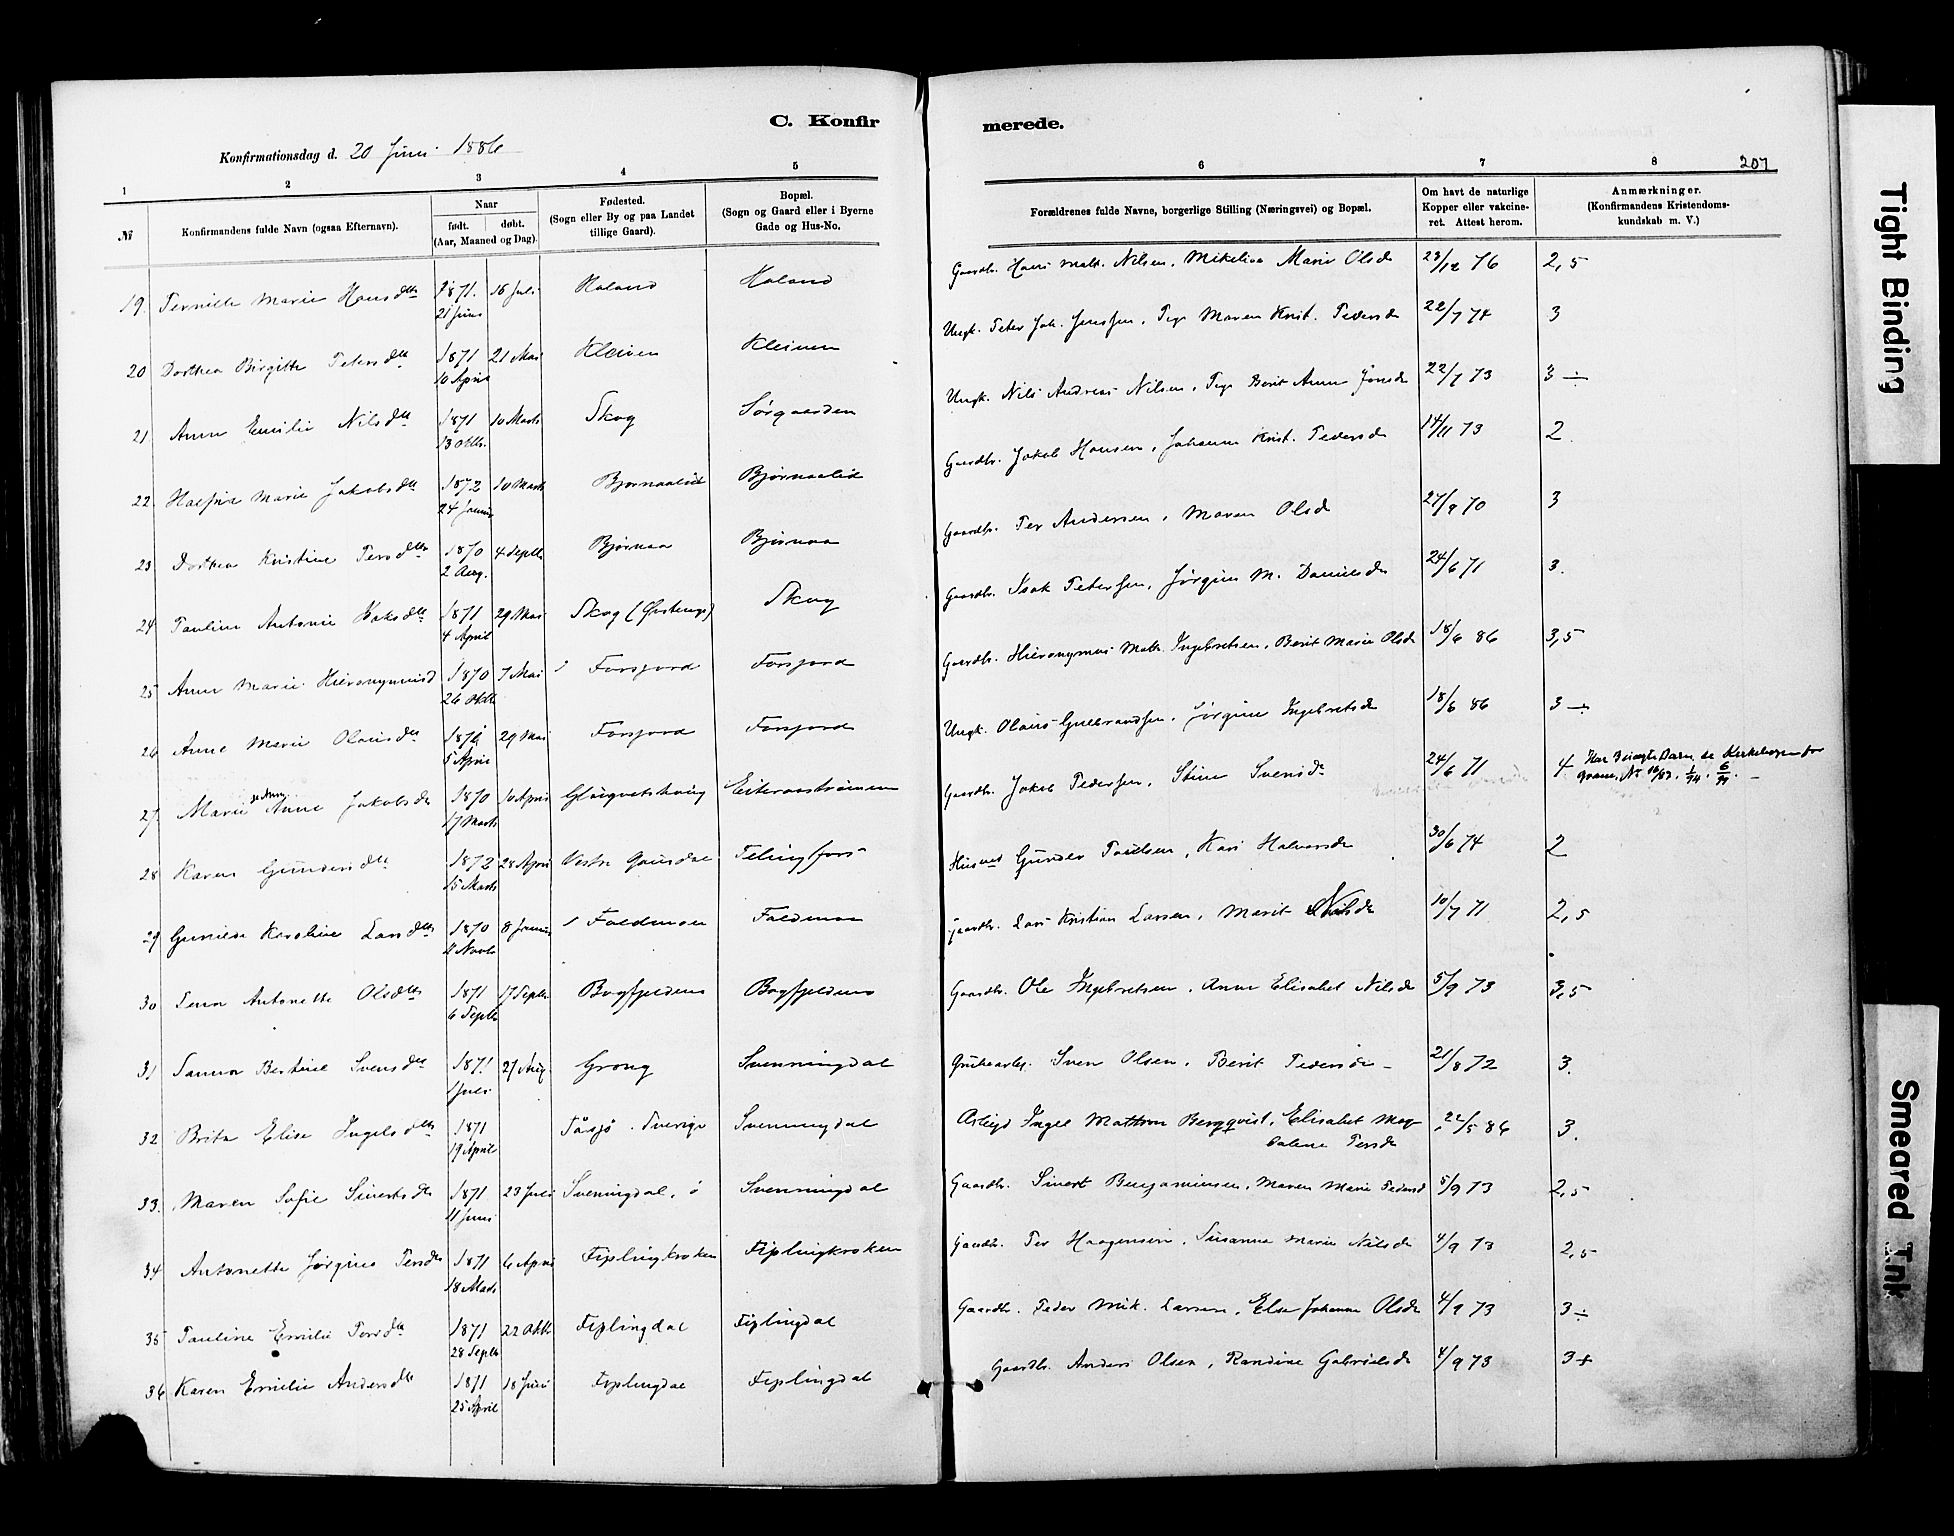 C. Konfir
merede.
Konfirmationsdag d. 20 Juni 1886
207
1 2 3 4 5 6 7 8
№
Konfirmandens fulde Navn (ogsaa Efternavn).
Naar
født. døbt.
(Aar, Maaned og Dag).
Fødested.
(Sogn eller By og paa Landet
tillige Gaard).
Bopæl.
(Sogn og Gaard eller i Byerne
Gade og Hus-No.
Forældrenes fulde Navne, borgerlige Stilling (Næringsvei) og Bopæl.
Om havt de naturlige
Kopper eller vakcine-
ret. Attest herom.
Anmærkninger.
(Konfirmandens Kristendoms-
kundskab m. V.)
19. Pernille Marie Hansdtr 1871. 21 Juni 16 Juli Haland Haland Gaardbr. Hans Math. Nilsen, Mikeline Marie Olsd 23/12 76 2,5
20 Dorthea Birgitte Petersdtr 1871 10 April 21 Mai Kleiven Kleiven Ungk. Peter Joh. Jenssen, Pige Maren Krist. Pedersd 22/7 74 3
21 Anne Emilie Nilsdtr 1871 13 Oktb. 10 Marts Skog Sørgaarden Ungk. Nils Andreas Nilsen, Pige Berit Anna Jonsd 22/7 73 3 ÷
22 Marie Jakobsdtr 1872 24 Januar 10 Marts Bjørnaalid Bjørnaalid Gaardbr. Jakob Hansen, Johanna Krist. Pedersd 14/11 73 2.
23 Dorthea Kristine Persdtr 1870 2 Aug. 4 Septb Bjørnaa Bjørnaa Gaardbr. Per Andersen, Maren Olsd 27/9 70 3
24 Pauline Antonie Isaksdtr 1871 4 April 29 Mai Skog Skog Gaardbr. Isak Petersen, Jørgine M. Danielsd 24/6 71 3.
25 Anne Marie Hieronymusd 1870 26 Oktb 7 Mai Forsjord Forsjord Gaardbr. Hieronymus Math. Ingebretsen, Berit Marie Olsd 18/6 86 3,5
26 Anne Marie Olausdtr 1871 5 April 29 Mai Forsjord Forsjord Ungk. Olaus Gulbrandsen, Jørgine Ingebretsd 18/6 86 3 ÷
27. Marie Anne Jakobsd 1870 17 Marts 10 April Eiteraastrømmen Gaardbr. Jakob Pedersen, Stine Svensd 24/6 71 4
28 Karen Gundersdtr 1872 15 Marts 28 April Vestre Gausdal Husmd Gunder Paulsen, Kari Halvorsd 30/6 74 2
29 Karoline Larsdtr 1870 11 Novb 8 Januar Faldmoen Faldmoen Gaardbr. Lars Kristian Larsen, Marit Nilsd 10/7 71 2,5
30 Antonette Olsdtr 1871 6 Septb 17 Septb Bogfjeldmo Bogfjeldmo Gaardbr. Ole Ingebretsen, Anne Elisabet Nilsd 5/9 73 3,5
31 Bertine Svensdtr 1871 1 Juli 27 Aug. Grong Svenningdal Sven Olsen, Berit Pedersd 21/8 72 3.
32 Brita Elise Ingelsdtr 1871 19 April Tåsjø. Sverige Svenningdal Arbeid Ingel Bergqvist, Elisabet Mag-
dalene Persd 22/5 86 3.
33. Maren Sofie Sivertsdtr 1871 11 Juni 23 Juli Sveningdal. Svenningdal Gaardbr. Sivert Benjaminsen, Maren Marie Pedersd 5/9 73 2,5
34 Antonette Jørgine Persdtr 1871 18 Marts 6 April Fiplingkroken Fiplingkroken Gaardbr. Per Haagensen, Susanna Marie Nilsd 4/9 73 2,5
35 Pauline Emilie 1871 28 Septb 22 Oktb Fiplingdal Fiplingdal Gaardbr. Peder Mik. Larsen, Else Johanna Olsd 4/9 73 3 ÷
36 Karen Emelie Andersdtr 1871 25 April 18 Juni Fiplingdal Fiplingdal Gaardbr. Anders Olsen, Randine Gabrielsd 4/9 73 3+
Tight Binding
Smeared Ink